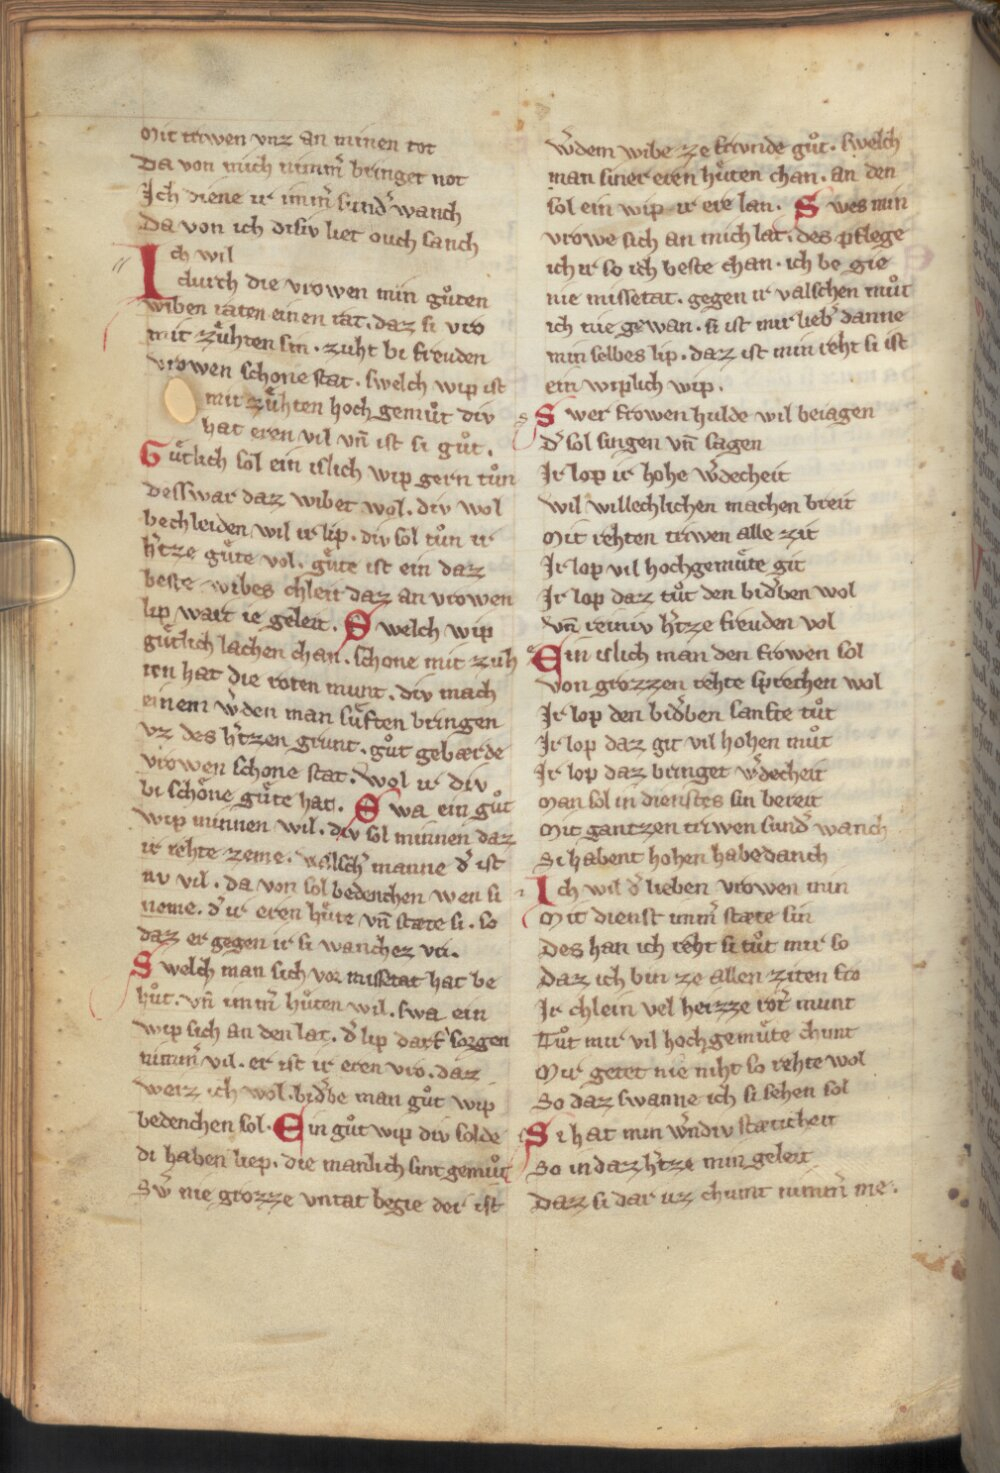 Mit triwen vnz an minen tot
Da von mich nimm̄ bringet not
Ich diene ir imm̄ sund̾ wanch
Da von ich disiv liet ouch sanch
Ich wil
durch die vrowen min guͦten
wiben raten einen rat. daz si vro
mit zuͤhten sin. zuht bi freuden
vrowen schone stat. swelch wip ist
mit zuͤhten hoch gemuͦt div
hat eren vil vn̄ ist si guͦt.
Guͤtlich sol ein islich wip gern tuͦn
desswar daz wibet wol. div wol
bechleiden wil ir lip. div sol tuͦn ir
h̾tze guͤte vol. guͤte ist ein daz
beste wibes chleit daz an vrowen
lip wart ie geleit. Swelch wip
guͤtlich lachen chan. schone mit zuh
ten hat die roten munt. div mach
einem w̾den man suͤften bringen
vz des h̾tzen grunt. guͦt gebærde
vrowen schone stat. Wol ir div
bi schoͤne guͤte hat. Swa ein guͦt
wip minnen wil. div sol minnen daz
ir rehte zeme. valsch̾ manne d̾ ist
nv vil. da von sol bedenchen wen si
neme. d̾ ir eren huͤte vn̄ stæte si. so
daz er gegen ir si wanches vri.
Swelch man sich vor missetat hat be
huͦt. vn̄ imm̄ huͤten wil. swa ein
wip sich an den lat. d̾ lip darf sorgen
nimm̄ vil. er ist ir eren vro. daz
weiz ich wol. bid̾be man guͦt wip
bedenchen sol. Ein guͦt wip div solde
di haben liep. die manlich sint gemuͦt
Sw̾ nie grozze vntat begie der ist
w̾dem wibe ze frivnde guͦt. swelch
man siner eren huͤten chan. an den
sol ein wip ir ere lan. Swes min
vrowe sich an mich lat. des pflege
ich ir so ich beste chan. ich be gie
nie missetat. gegen ir valschen muͦt
ich nie gewan. si ist mir lieb̾ danne
min selbes lip. daz ist min reht si ist
ein wiplich wip.
Swer frowen hulde wil beiagen
d̾ sol singen vn̄ sagen
Ir lop ir hohe w̾decheit
wil willechlichen machen breit
Mit rehten triwen alle zit
Ir lop vil hochgemuͤte git
Ir lop daz tuͦt den bid̾ben wol
vn̄ reiniv h̾tze freuden vol
Ein islich man den frowen sol
von grozzen rehte sprechen wol
Ir lop den bid̾ben sanfte tuͦt
Ir lop daz git vil hohen muͦt
Ir lop daz bringet w̾decheit
Man sol in dienstes sin bereit
Mit gantzen triwen sund̾ wanch
Si habent hohen habedanch
Ich wil d̾ lieben vrowen min
Mit dienst imm̄ stæte sin
Des han ich reht si tuͦt mir so
Daz ich bin ze allen ziten fro
Ir chlein vel heizze rot̾ munt
Tuͦt mir vil hochgemuͤte chunt
Mir getet nie niht so rehte wol
So daz swanne ich si sehen sol
Si hat min w̾ndiv stæticheit
So in daz h̾tze min geleit
Daz si dar uz chumt nimm̄ me.